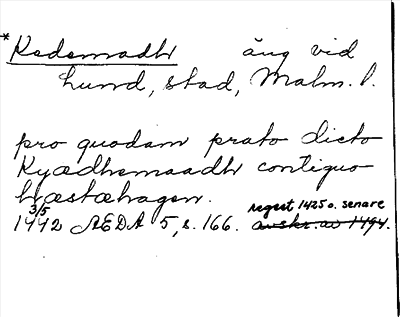 *Kedemadh äng vid
Lund, stad, Malm. l.
pro quodam prato dicto
Kyædhemaadh contiguo
hæstæhagen.
regest 1425 o. senare
3/5
1442 AEDA 5, s. 166. avskr. av 1494.